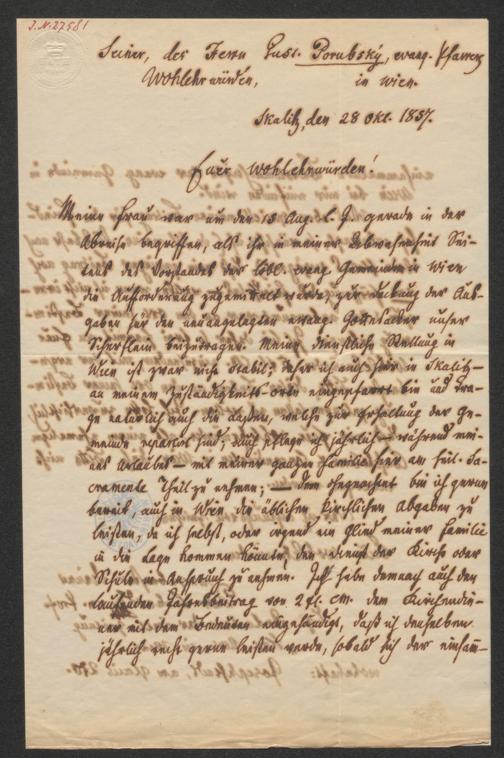 J.N. 27581
Seiner, des Herrn Gust. Porubský, evang. Pfarrers
Wohlehrwürden,
in Wien.
Skalitz, den 28 Okt. 1857.
Euer Wohlehrwürden!
Meine Frau war um den 18 Aug. l. J. gerade in der
Abreise begriffen, als ihr in meiner Abwesenheit Sei-
tens des Vorstandes der löbl. evang. Gemeinden in Wien
die Aufforderung zugemittelt wurde, zur Deckung der Aus-
gaben für den neuangelegten evang. Gottesacker unser
Scherflein beizutragen. Meine dienstliche Stellung in
Wien ist zwar nicht stabil; daher ich auch hier in Skalitz –
an meinem Zuständigkeits-Orte eingepfarrt bin und tra-
ge natürlich auch die Lasten, welche zur Erhaltung der Ge-
meinde sind; auch pflege ich jährlich – während mei-
nes Urlaubes – mit meiner ganzen Familie hier am heil. Sa-
cramente Theil zu nehmen; – dem ohngeachtet bin ich gerne
bereit, auch in Wien die üblichen kirchlichen Abgaben zu
leisten, da ich selbst, oder irgend ein Glied meiner Familie
in die Lage kommen könnte, den Dienst der Kirche oder
Schule in Anspruch zu nehmen. Ich habe demnach auch den
laufenden Jahresbeitrag von 2 fl. CM. dem Kirchendie-
ner mit dem Bedeuten eingehändigt, daß ich denselben
jährlich recht gerne leisten werde, sobald sich der einsam-